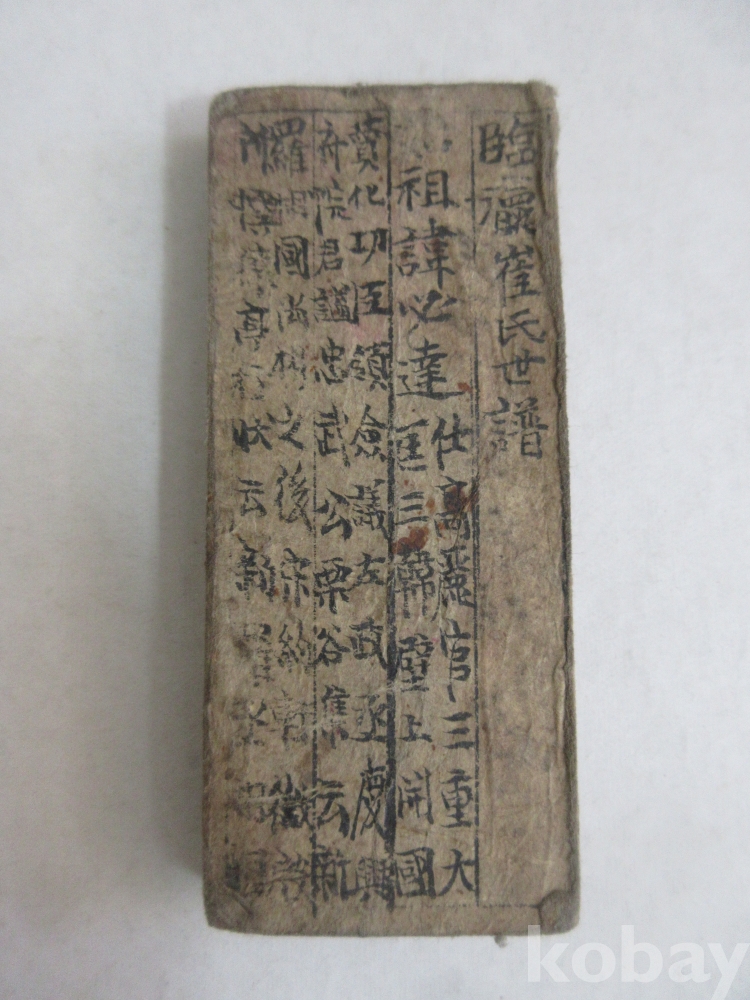 臨瀛崔氏世譜
祖諱必達
仕高麗官三重大
匡三韓壁上開國
贊化功臣領僉議左政丞慶興
府院君謚忠武公栗谷集云新
羅相國尚之後宋約軒徵
亭狀云新羅